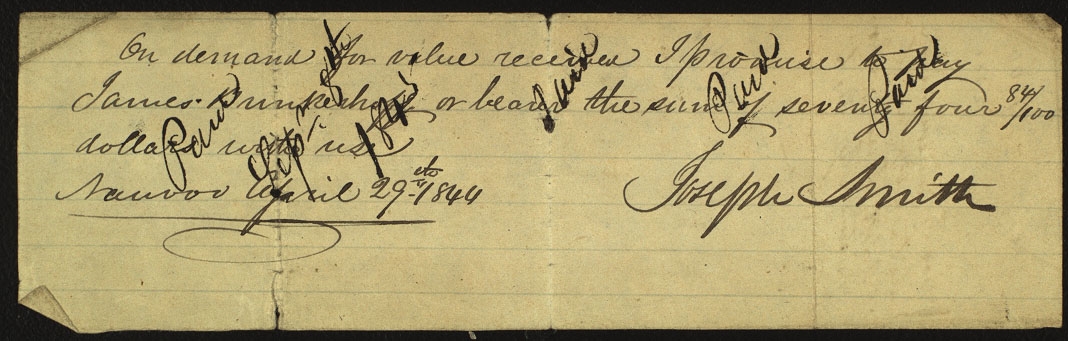 On demand for value received I promise to pay
James Brinkerhoff or bearer the sum of seventy four 84/100
dollars with use
Nauvoo April 29th 1844
Joseph Smith
Paid
Paid
Paid
Paid